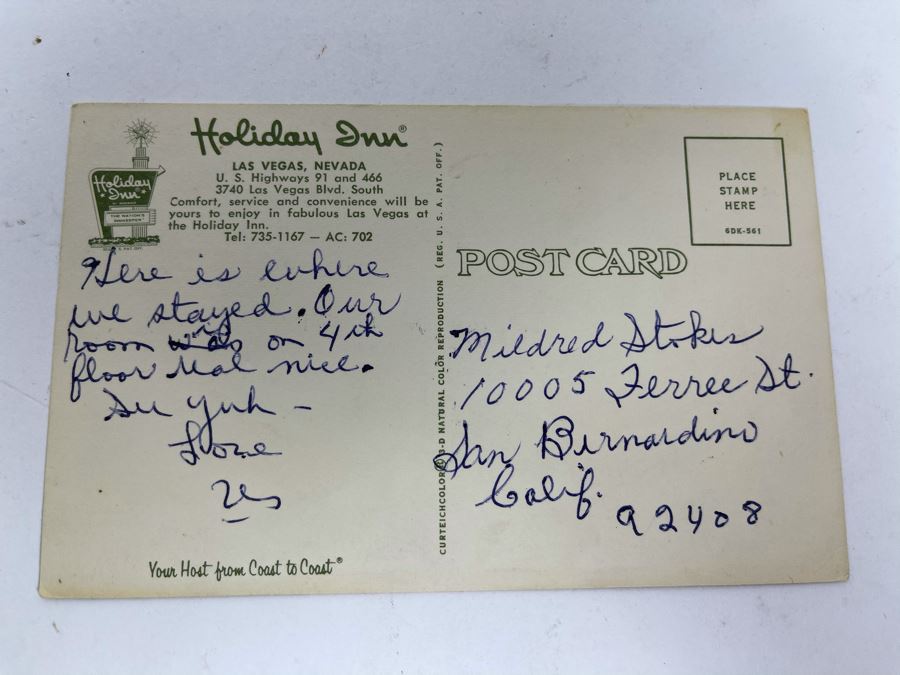 Holiday Inn®
LAS VEGAS, NEVADA
U. S. Highways 91 and 466
3740 Las Vegas Blvd. South
Comfort, service and convenience will be
yours to enjoy in fabulous Las Vegas at
the Holiday Inn.
Tel: 735-1167 — AC: 702
Holiday
Inn
THE NATION'S
INNKEEPER
Here is where
we stayed. Our
room was on 4th
floor real nice.
Love
Your Host from Coast to Coast®
CURTEICHCOLOR® 3-D NATURAL COLOR REPRODUCTION (REG. U. S. A. PAT. OFF.)
PLACE
STAMP
HERE
6DK-561
POST CARD
Mildred Stokes
10005 Ferree St.
San Bernardino
Calif.
92408